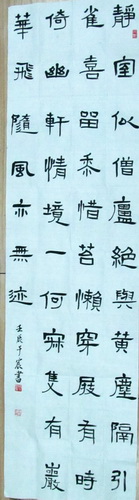 靜室似僧廬絕與黃塵隔引
雀喜留黍惜苔懶穿屐有時
倚幽軒情境一何寂隻有巖
華飛隨風亦無迹
壬辰 書